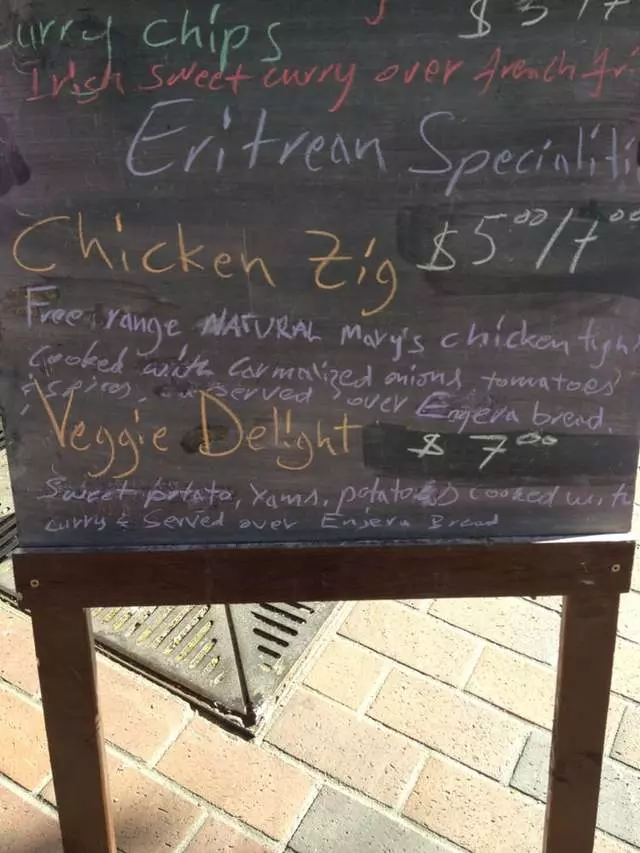 curry chips $5/7
Irish sweet curry over french fri
Eritrean Specialiti
Chicken Zig $5.00/7.00
Free range NATURAL Mary's chicken tigh
cooked with carmalized onions, tomatoes
& spices, served over Enjera bread.
Veggie Delight $7.00
Sweet potato, Yams, potatoes cooked with
curry & Served over Enjera Bread